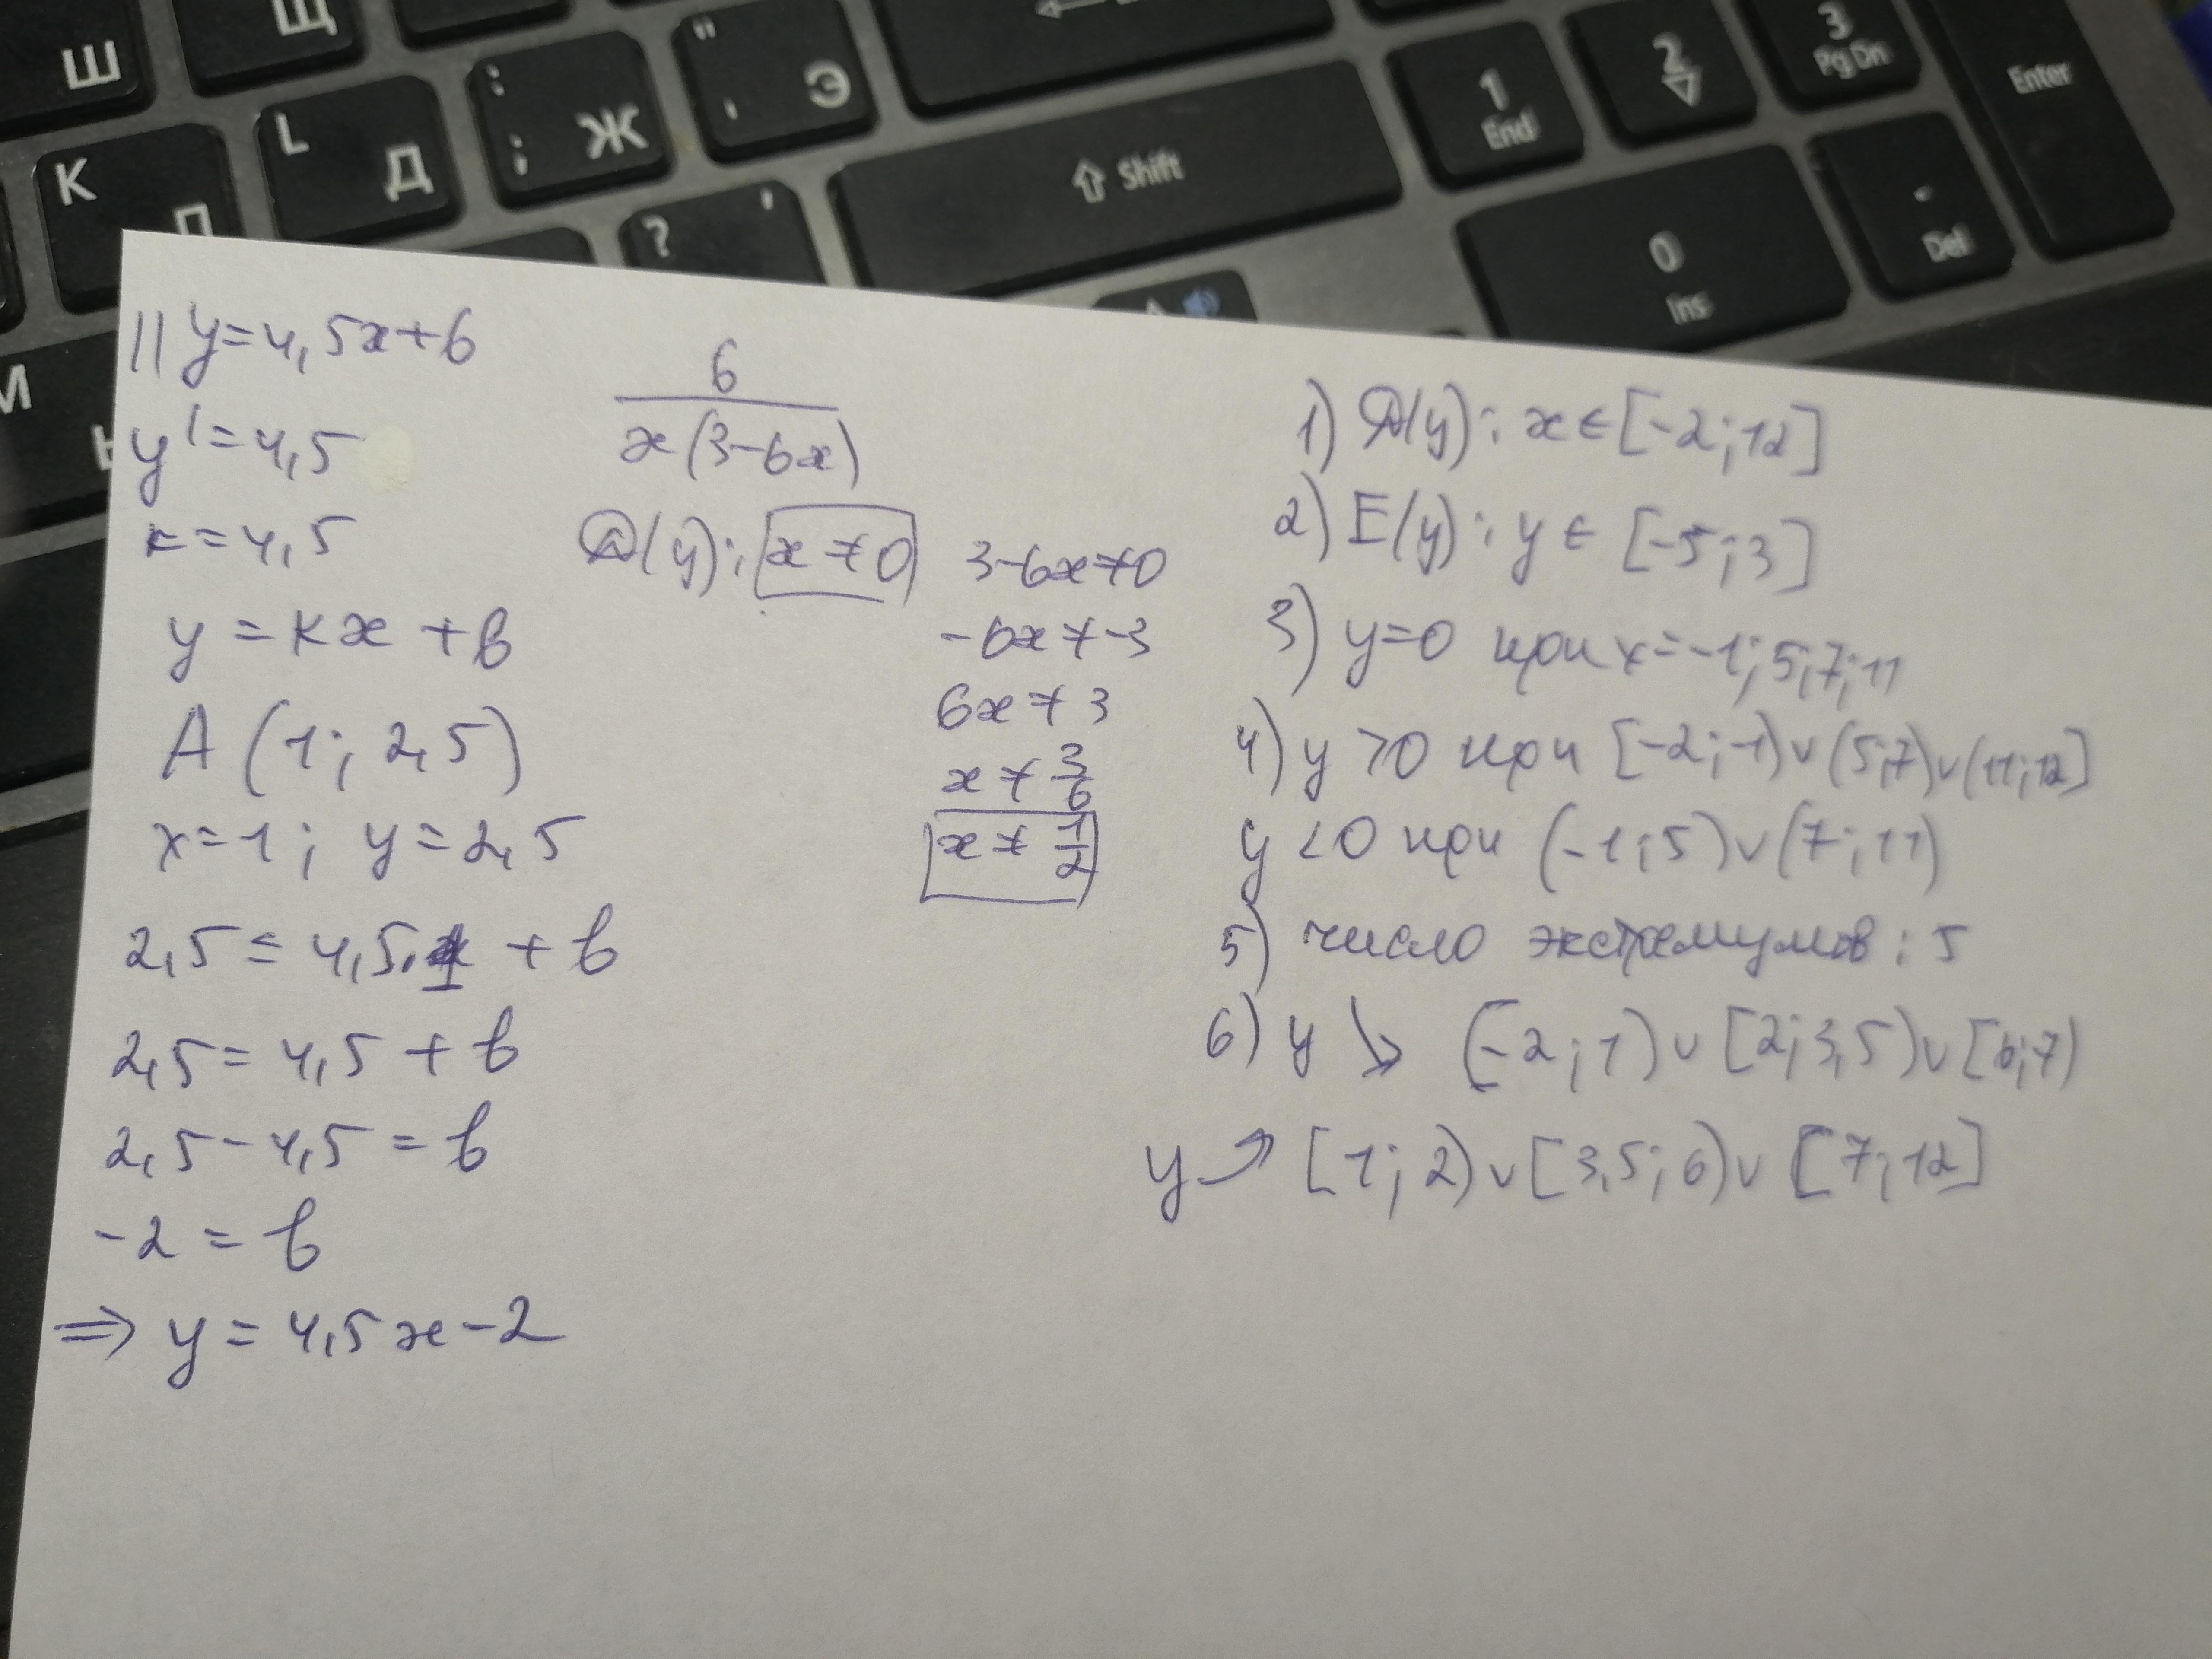 Ш
Щ
" Э '
: Ж ;
L Д
K Л
? ,
М
⇧ Shift
1 End
2 ▽
3 Pg Dn
Enter
0 Ins
. Del
|| y=4,5x+6
y'=4,5
k=4,5
y=kx+b
A(1; 2,5)
x=1; y=2,5
2,5=4,5·1+b
2,5=4,5+b
2,5-4,5=b
-2=b
⇒ y=4,5x-2
6
x(3-6x)
D(y): x≠0
3-6x≠0
-6x≠-3
6x≠3
x≠3/6
x≠1/2
1) D(y): x∈[-2;12]
2) E(y): y∈[-5;3]
3) y=0 при x=-1;5;7;11
4) y>0 при [-2;-1)∪(5;7)∪(11;12]
y<0 при (-1;5)∪(7;11)
5) число экстремумов: 5
6) y↘ [-2;1)∪[2;3,5)∪[6;7)
y↗ [1;2)∪[3,5;6)∪[7;12]